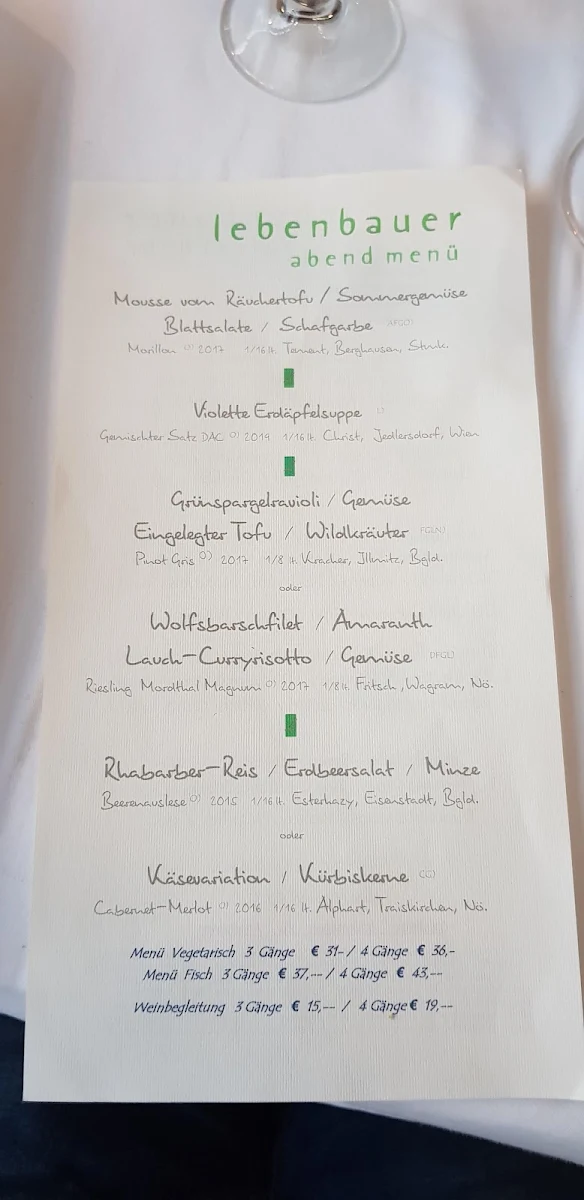 lebenbauer
abend menü
Mousse vom Räuchertofu / Sommergemüse
Blattsalate / Schafgarbe
Morillon O) 2017 1/16 lt. Tement, Berghausen, Stmk.
Violette Erdäpfelsuppe
Gemischter Satz DAC O) 2019 1/16 lt. Christ, Jedlersdorf, Wien
Grünspargelravioli / Gemüse
Eingelegter Tofu / Wildkräuter
Pinot Gris O) 2017 1/8 lt. Kracher, Illmitz, Bgld.
oder
Wolfsbarschfilet / Amaranth
Lauch-Curryrisotto / Gemüse
Riesling Mordthal Magnum O) 2017 1/8 lt. Fritsch, Wagram, Nö.
Rhabarber-Reis / Erdbeersalat / Minze
Beerenauslese O) 2015 1/16 lt. Esterhazy, Eisenstadt, Bgld.
oder
Käsevariation / Kürbiskerne
Cabernet-Merlot O) 2016 1/16 lt. Alphart, Traiskirchen, Nö.
Menü Vegetarisch 3 Gänge € 31,- / 4 Gänge € 36,-
Menü Fisch 3 Gänge € 37,-- / 4 Gänge € 43,--
Weinbegleitung 3 Gänge € 15,-- / 4 Gänge € 19,--